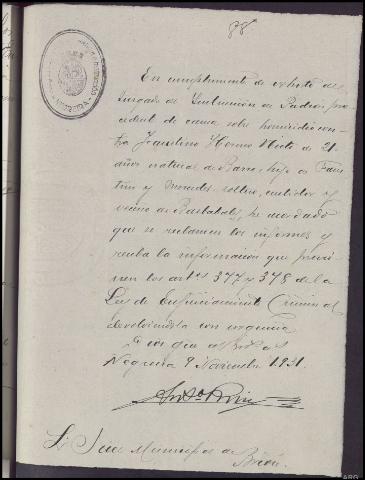 88
En cumplimento de exhorto del
Juzgado de Instrucción de Padrón pro
cedente de causa sobre homicidio con-
tra Faustino Hermo Nieto de 21
años natural de Barro, hijo de Faus
tino y soltero, curtidor y
vecino de he acordado
que se reclamen los informes y
reciba la información que previe
nen los artos 377 y 378 de la
Ley de Enjuiciamiento Criminal
devolviendola con urgencia
Negreira 9 Noviembre 1.921.
Sr Juez Municipal de
Brión.
ARG